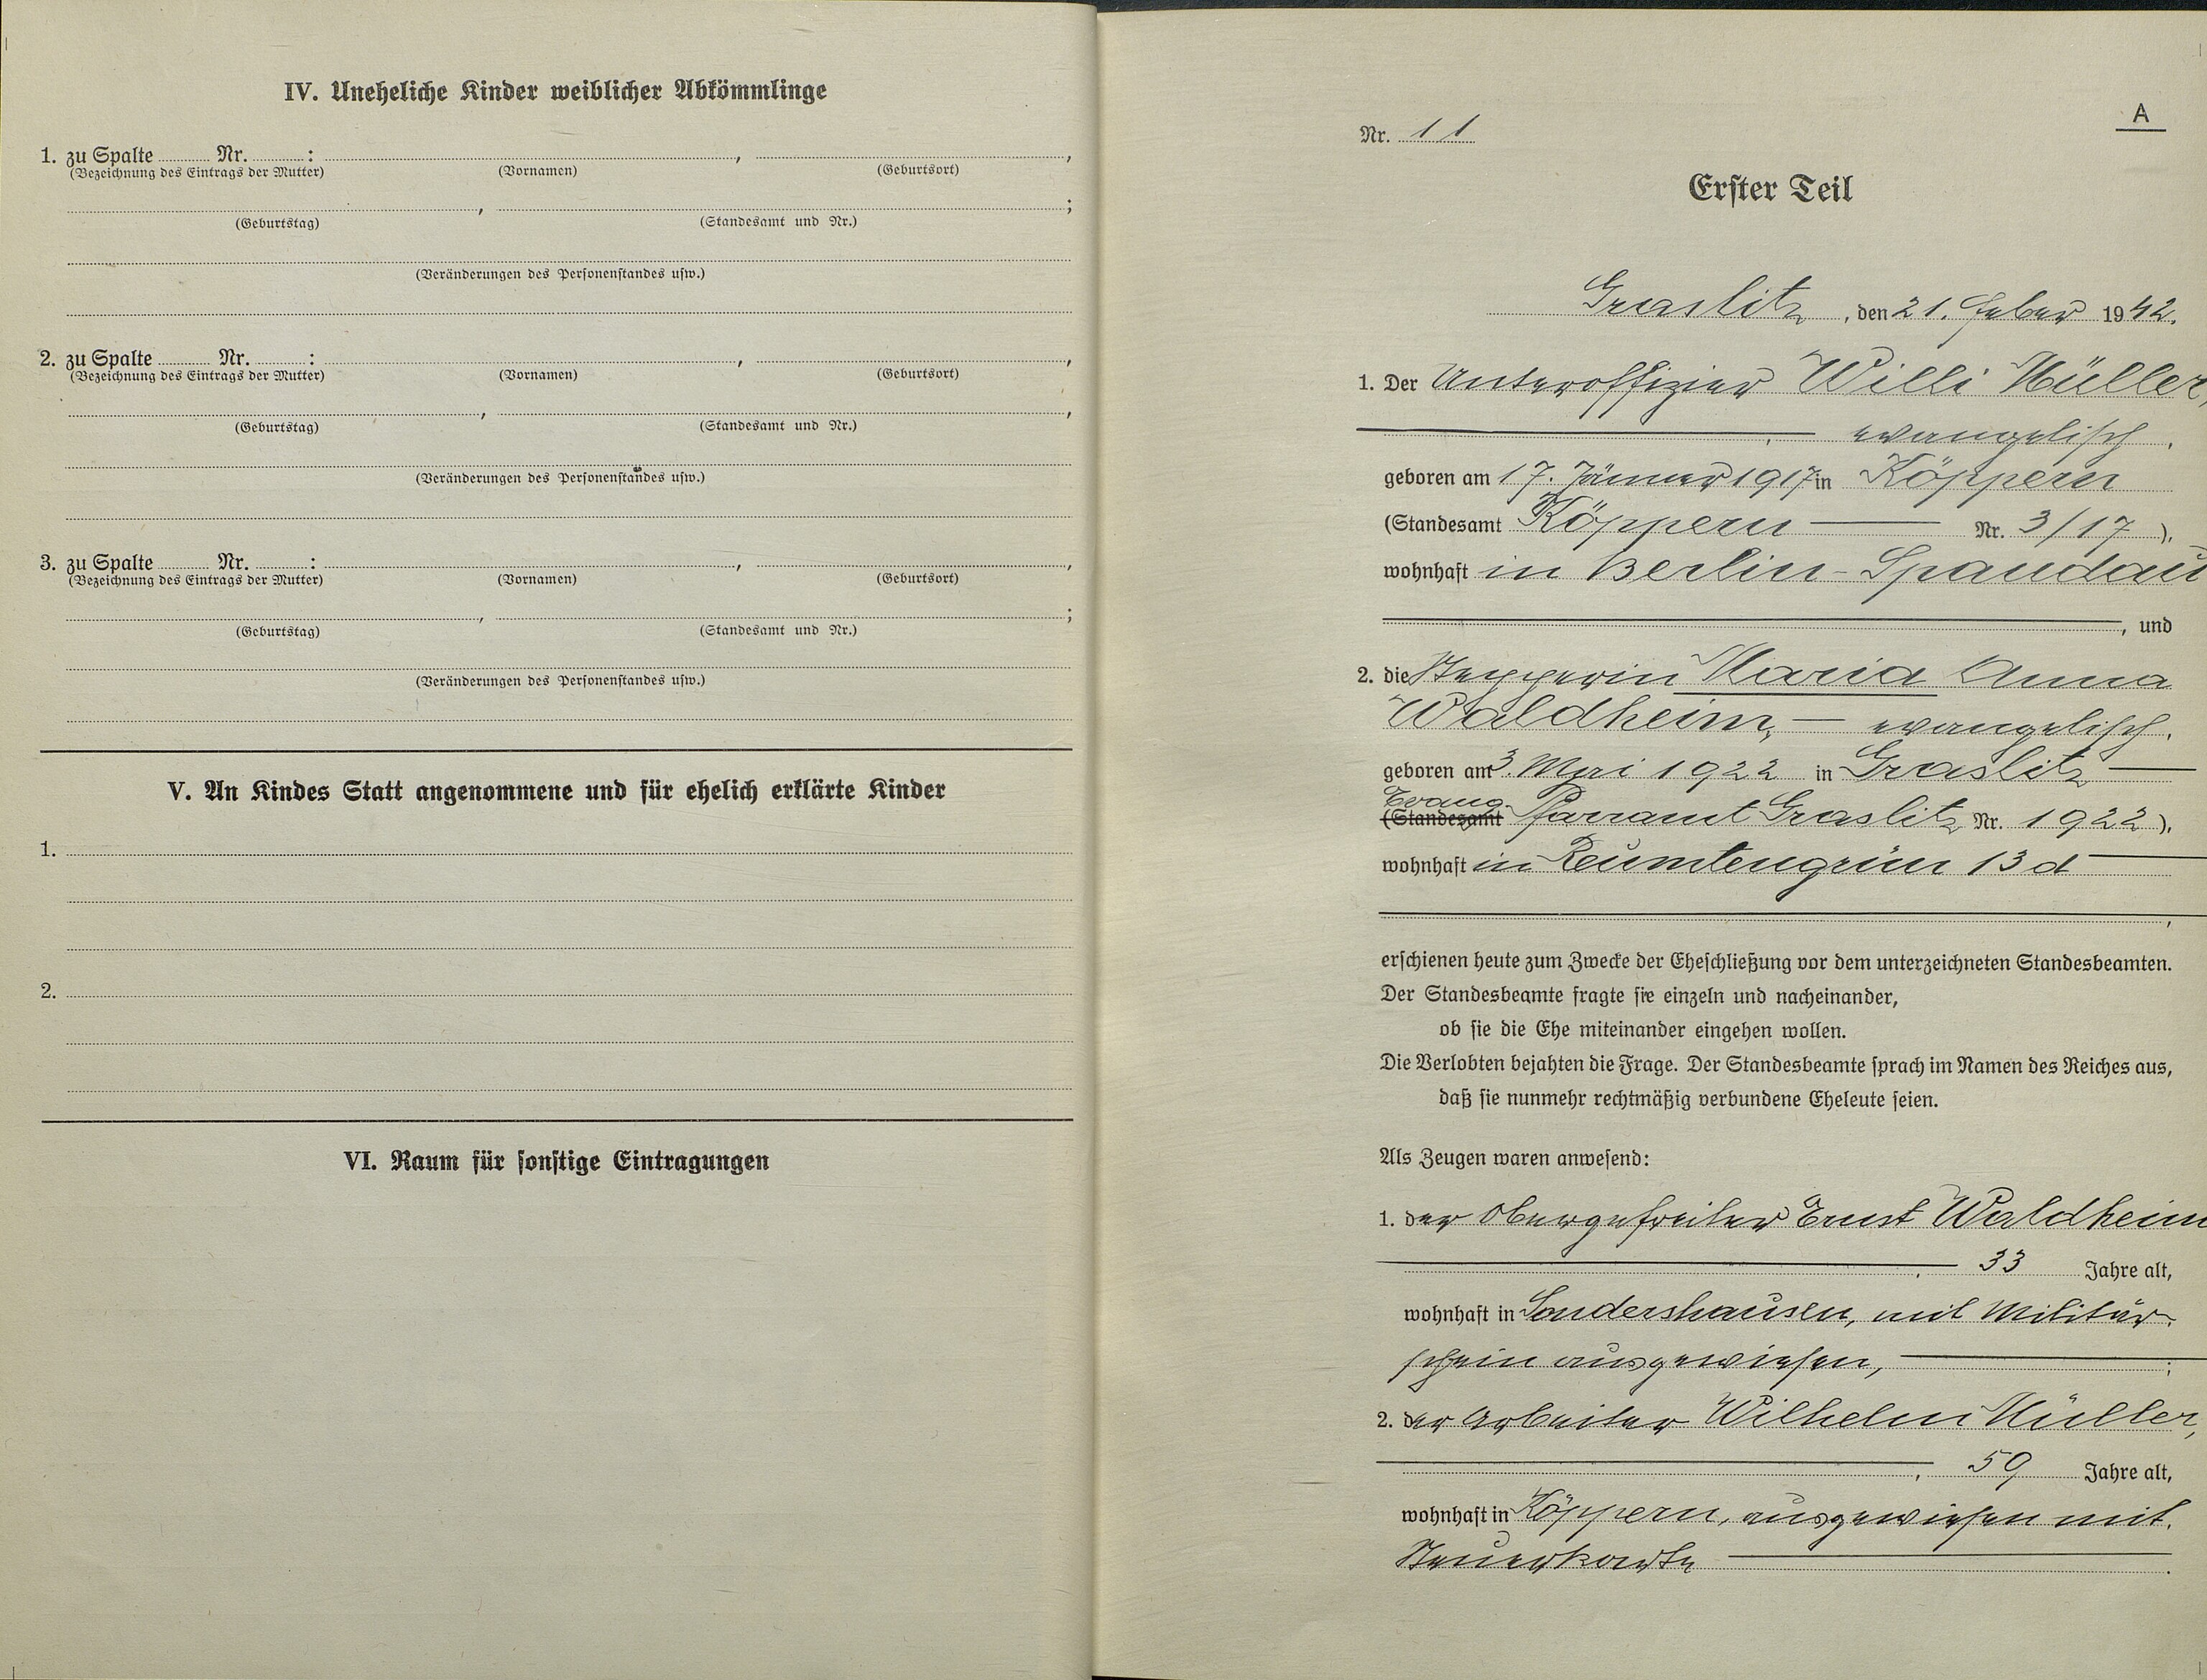 IV. Uneheliche Kinder weiblicher Abkömmlinge
1. zu Spalte ........ Nr. ........ : ........ , ........ ,
(Bezeichnung des Eintrags der Mutter) (Vornamen) (Geburtsort)
........ , ........ ;
(Geburtstag) (Standesamt und Nr.)
(Veränderungen des Personenstandes usw.)
2. zu Spalte ........ Nr. ........ : ........ , ........ ,
(Bezeichnung des Eintrags der Mutter) (Vornamen) (Geburtsort)
........ , ........ ,
(Geburtstag) (Standesamt und Nr.)
(Veränderungen des Personenstandes usw.)
3. zu Spalte ........ Nr. ........ : ........ , ........ ,
(Bezeichnung des Eintrags der Mutter) (Vornamen) (Geburtsort)
........ , ........ ;
(Geburtstag) (Standesamt und Nr.)
(Veränderungen des Personenstandes usw.)
V. An Kindes Statt angenommene und für ehelich erklärte Kinder
1.
2.
VI. Raum für sonstige Eintragungen
A
Nr. 11
Erster Teil
Graslitz, den 21. Feber 1942.
1. Der Unteroffizier Willi Müller,
evangelisch,
geboren am 17. Jänner 1917 in Köppern
(Standesamt Köppern Nr. 3/17),
wohnhaft in Berlin-Spandau
, und
2. die Stepperin Maria Anna
Waldheim, — evangelisch,
geboren am 3. Mai 1922 in Graslitz
Evang.
(Standesamt Pfarramt Graslitz Nr. 1922),
wohnhaft in Reumtengrün 13 d
,
erschienen heute zum Zwecke der Eheschließung vor dem unterzeichneten Standesbeamten.
Der Standesbeamte fragte sie einzeln und nacheinander,
ob sie die Ehe miteinander eingehen wollen.
Die Verlobten bejahten die Frage. Der Standesbeamte sprach im Namen des Reiches aus,
daß sie nunmehr rechtmäßig verbundene Eheleute seien.
Als Zeugen waren anwesend:
1. der Obergefreiter Ernst Waldheim
, 33 Jahre alt,
wohnhaft in Sondershausen, mit Militär-
schein ausgewiesen, ;
2. der Arbeiter Wilhelm Müller,
, 59 Jahre alt,
wohnhaft in Köppern, ausgewiesen mit
Steuerkarte .